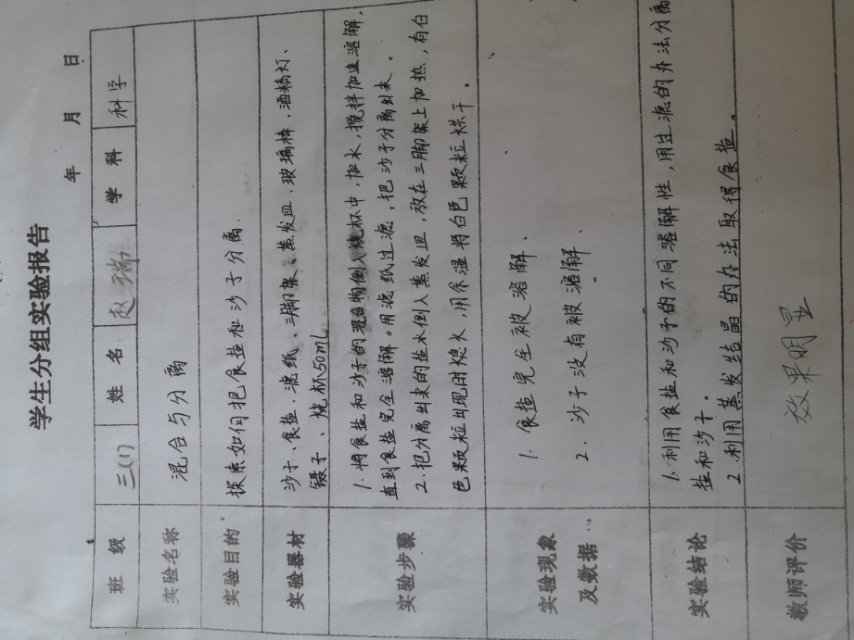 学生分组实验报告
年 月 日
班 级 三(1) 姓 名 赵 瑞 学 科 科学
实验名称 混合与分离
实验目的 探索如何把食盐和沙子分离.
实验器材 沙子、食盐、滤纸、三脚架、蒸发皿、玻璃棒、酒精灯、
镊子、烧杯50mL
实验步骤 1.将食盐和沙子的混合物倒入烧杯中,加水,搅拌加速溶解,
直到食盐完全溶解。用滤纸过滤,把沙子分离出来。
2.把分离出来的盐水倒入蒸发皿,放在三脚架上加热,有白
色颗粒出现时熄火,用余温将白色颗粒烘干。
实验现象
及数据
1. 食盐完全被溶解.
2. 沙子没有被溶解.
实验结论 1.利用食盐和沙子的不同溶解性,用过滤的办法分离
盐和沙子。
2.利用蒸发结晶的办法取得食盐。
教师评价 效果明显